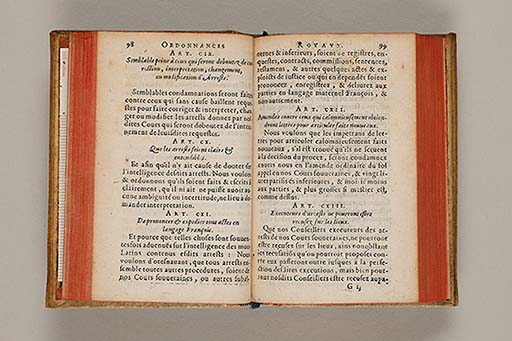 98 ORDONNANCES
ART. CIX.
Semblable peine à ceux qui seront deboutez de
interpretation, changement,
ou modification d'Arrests.
Semblables condamnations seront faites
contre ceux qui sans cause baillent reque-
stes pour faire corriger & interpreter, chan-
ger ou modifier les arrests donnez par nos-
dites Cours qui seront deboutez de l'inter-
nement de lesdites requestes.
ART. CX.
Que les arrests soient clairs &
entendibles.
Et afin qu'il n'y ait cause de douter sur
l'intelligence desdits arrests. Nous voulons
& ordonnons qu'ils soient faits & escrits si
clairement, qu'il n'y ait ne puisse avoir au-
cune ambiguité ou incertitude, ne lieu à de-
mander interpretation.
ART. CXI.
De prononcer & expedier tous actes en
langage François.
Et pource que telles choses sont souuen-
tesfois aduenuës sur l'intelligence des mots
Latins contenus esdits arrests: Nous
voulons d'oresnauant, que tous arrests en-
semble toutes autres procedures, soient de
nos Cours souueraines, ou autres subal-
ROYAUX. 99
ternes & inferieurs, soient de registres, en-
questes, contracts, commissions, sentences,
testamens, & autres quelques actes & ex-
ploicts de iustice ou qui en dependent soient
prononcez, enregistrez, & deliurez aux
parties en langage maternel François, &
non autrement.
ART. CXII.
Amendes contre ceux qui calomnieusement obtien-
dront lettres pour articuler faits nouueaux.
Nous voulons que les impetrans de let-
tres pour articuler calomnieusement faits
nouueaux, s'il est trouué qu'ils ne seruent
à la decision du procez, seront condamnez
enuers nous en l'amende ordinaire du fol
appel en nos Cours souueraines, & vingt li-
ures parisis és inferieures, & moitié moins
aux parties, & plus grosses si mestier est,
comme dessus.
ART. CXIII.
Executeurs d'arrests ne pourront estre
recusez sur les lieux.
Que nos Conseillers executeurs des ar-
rests de nos Cours souueraines, ne pourront
estre recusez sur les lieux, ains nonobstant
les recusations qu'on pourroit proposer con-
tre eux passeront outre iusques à la perfe-
ction desdites executions, mais bien pour-
ront nosdits Conseillers estre recusez aupa-
G ij